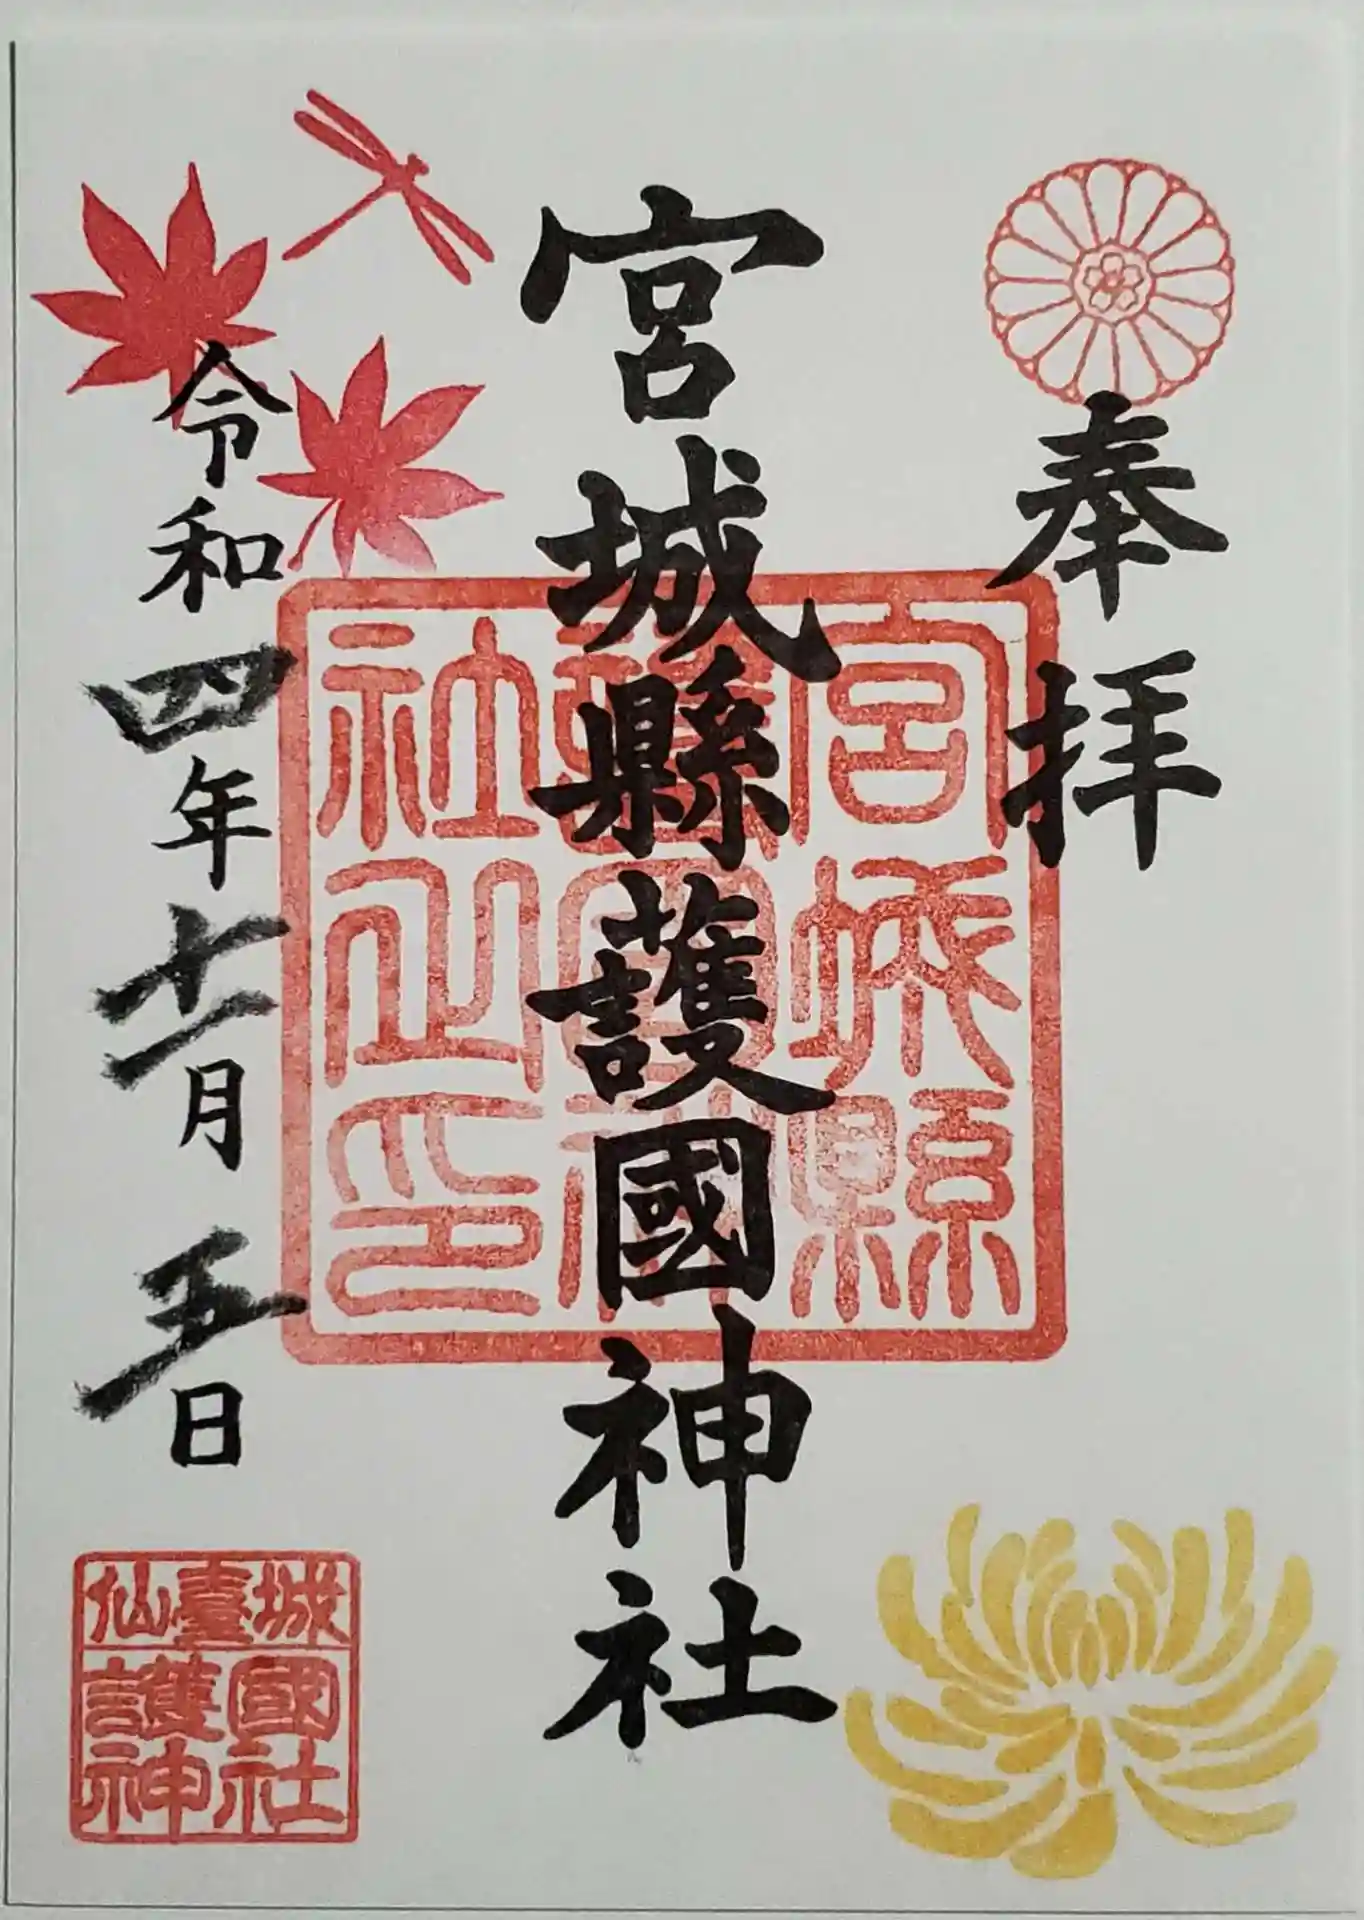 奉拝
宮城縣護國神社
令和四年十一月五日
宮城縣
護國神
社之印
仙臺城
護國
神社